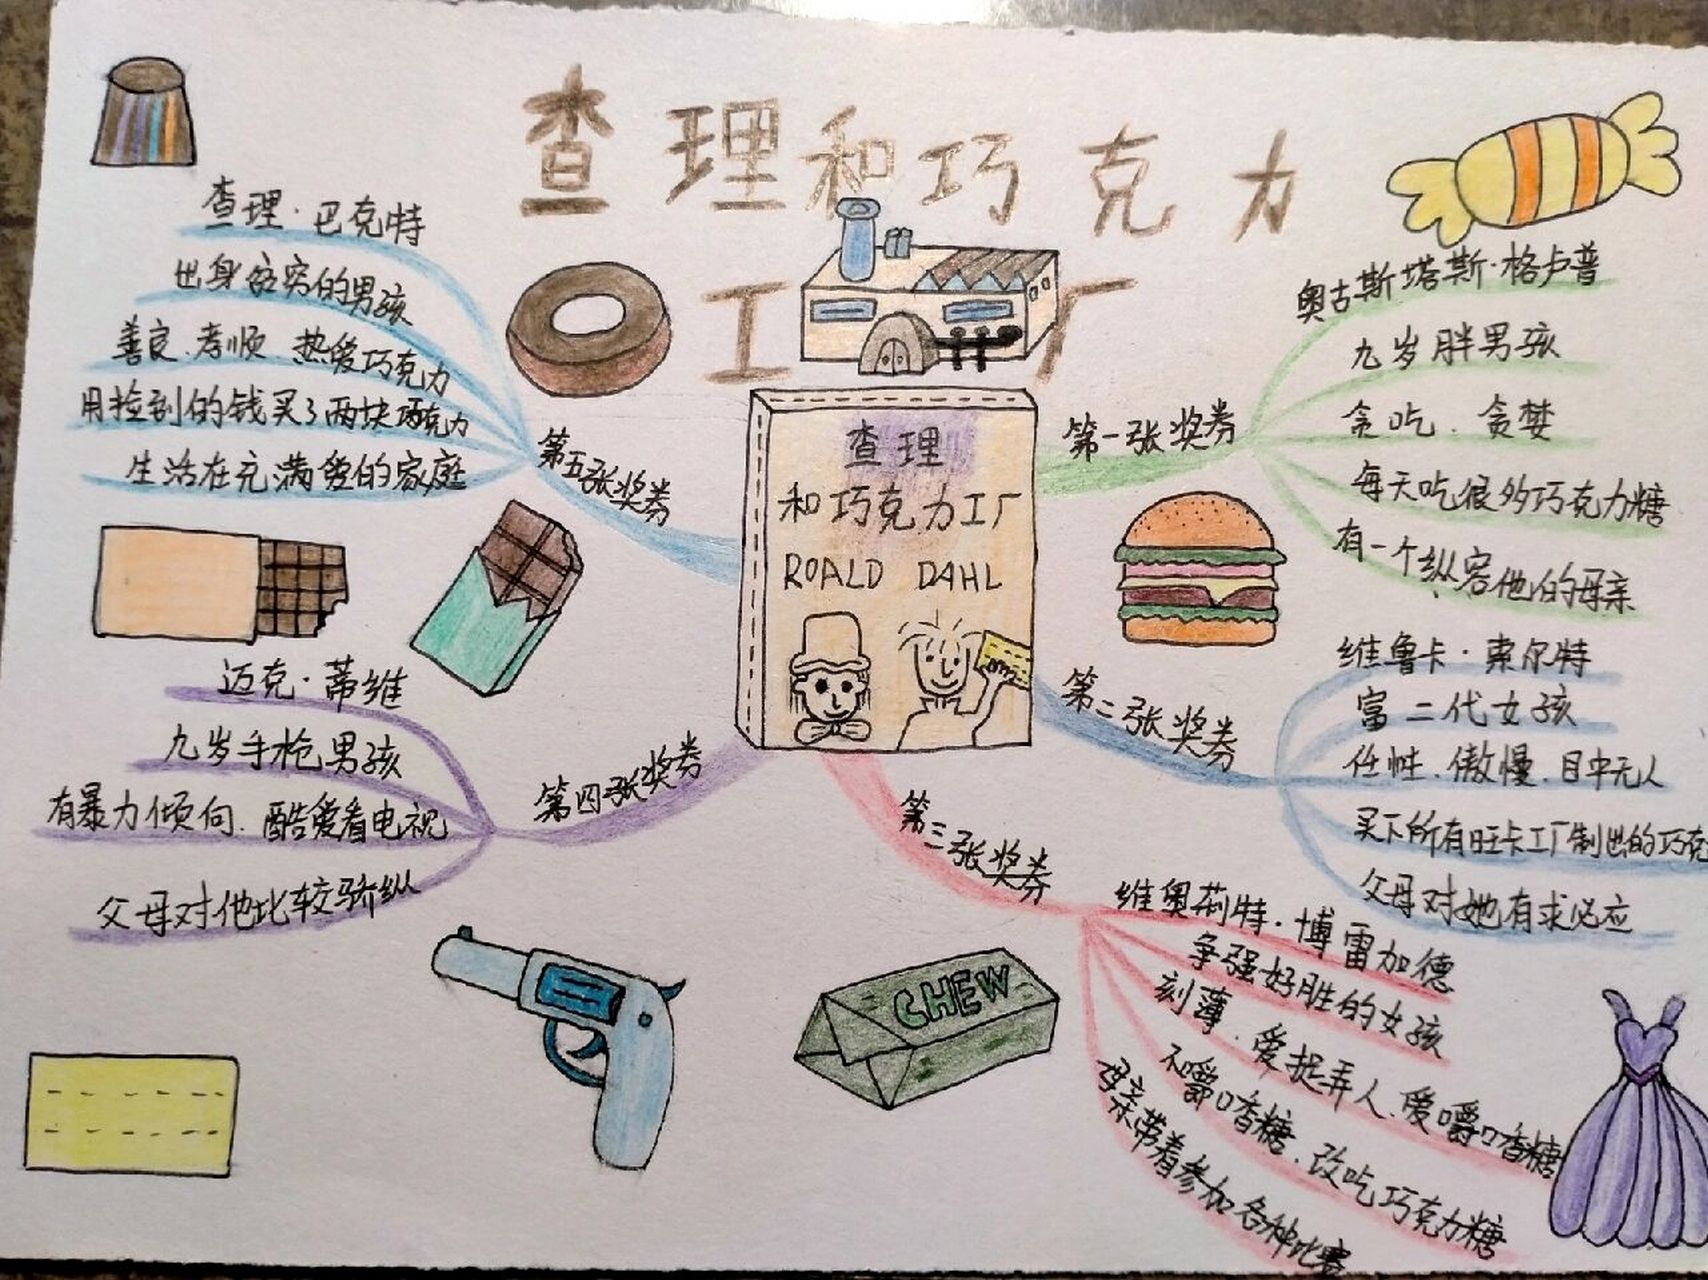 查理和巧克力
工厂
查理
和巧克力工厂
ROALD DAHL
第一张奖券
奥古斯塔斯·格卢普
九岁胖男孩
贪吃、贪婪
每天吃很多巧克力糖
有一个纵容他的母亲
第二张奖券
维鲁卡·索尔特
富二代女孩
任性、傲慢、目中无人
买下所有旺卡工厂制出的巧克
父母对她有求必应
第三张奖券
维奥莉特·博雷加德
争强好胜的女孩
刻薄、爱捉弄人、爱嚼口香糖
不嚼口香糖、改吃巧克力糖
母亲带着参加各种比赛
第四张奖券
迈克·蒂维
九岁手枪男孩
有暴力倾向、酷爱看电视
父母对他比较骄纵
第五张奖券
查理·巴克特
出身贫穷的男孩
善良、孝顺、热爱巧克力
用捡到的钱买了两块巧克力
生活在充满爱的家庭
CHEW